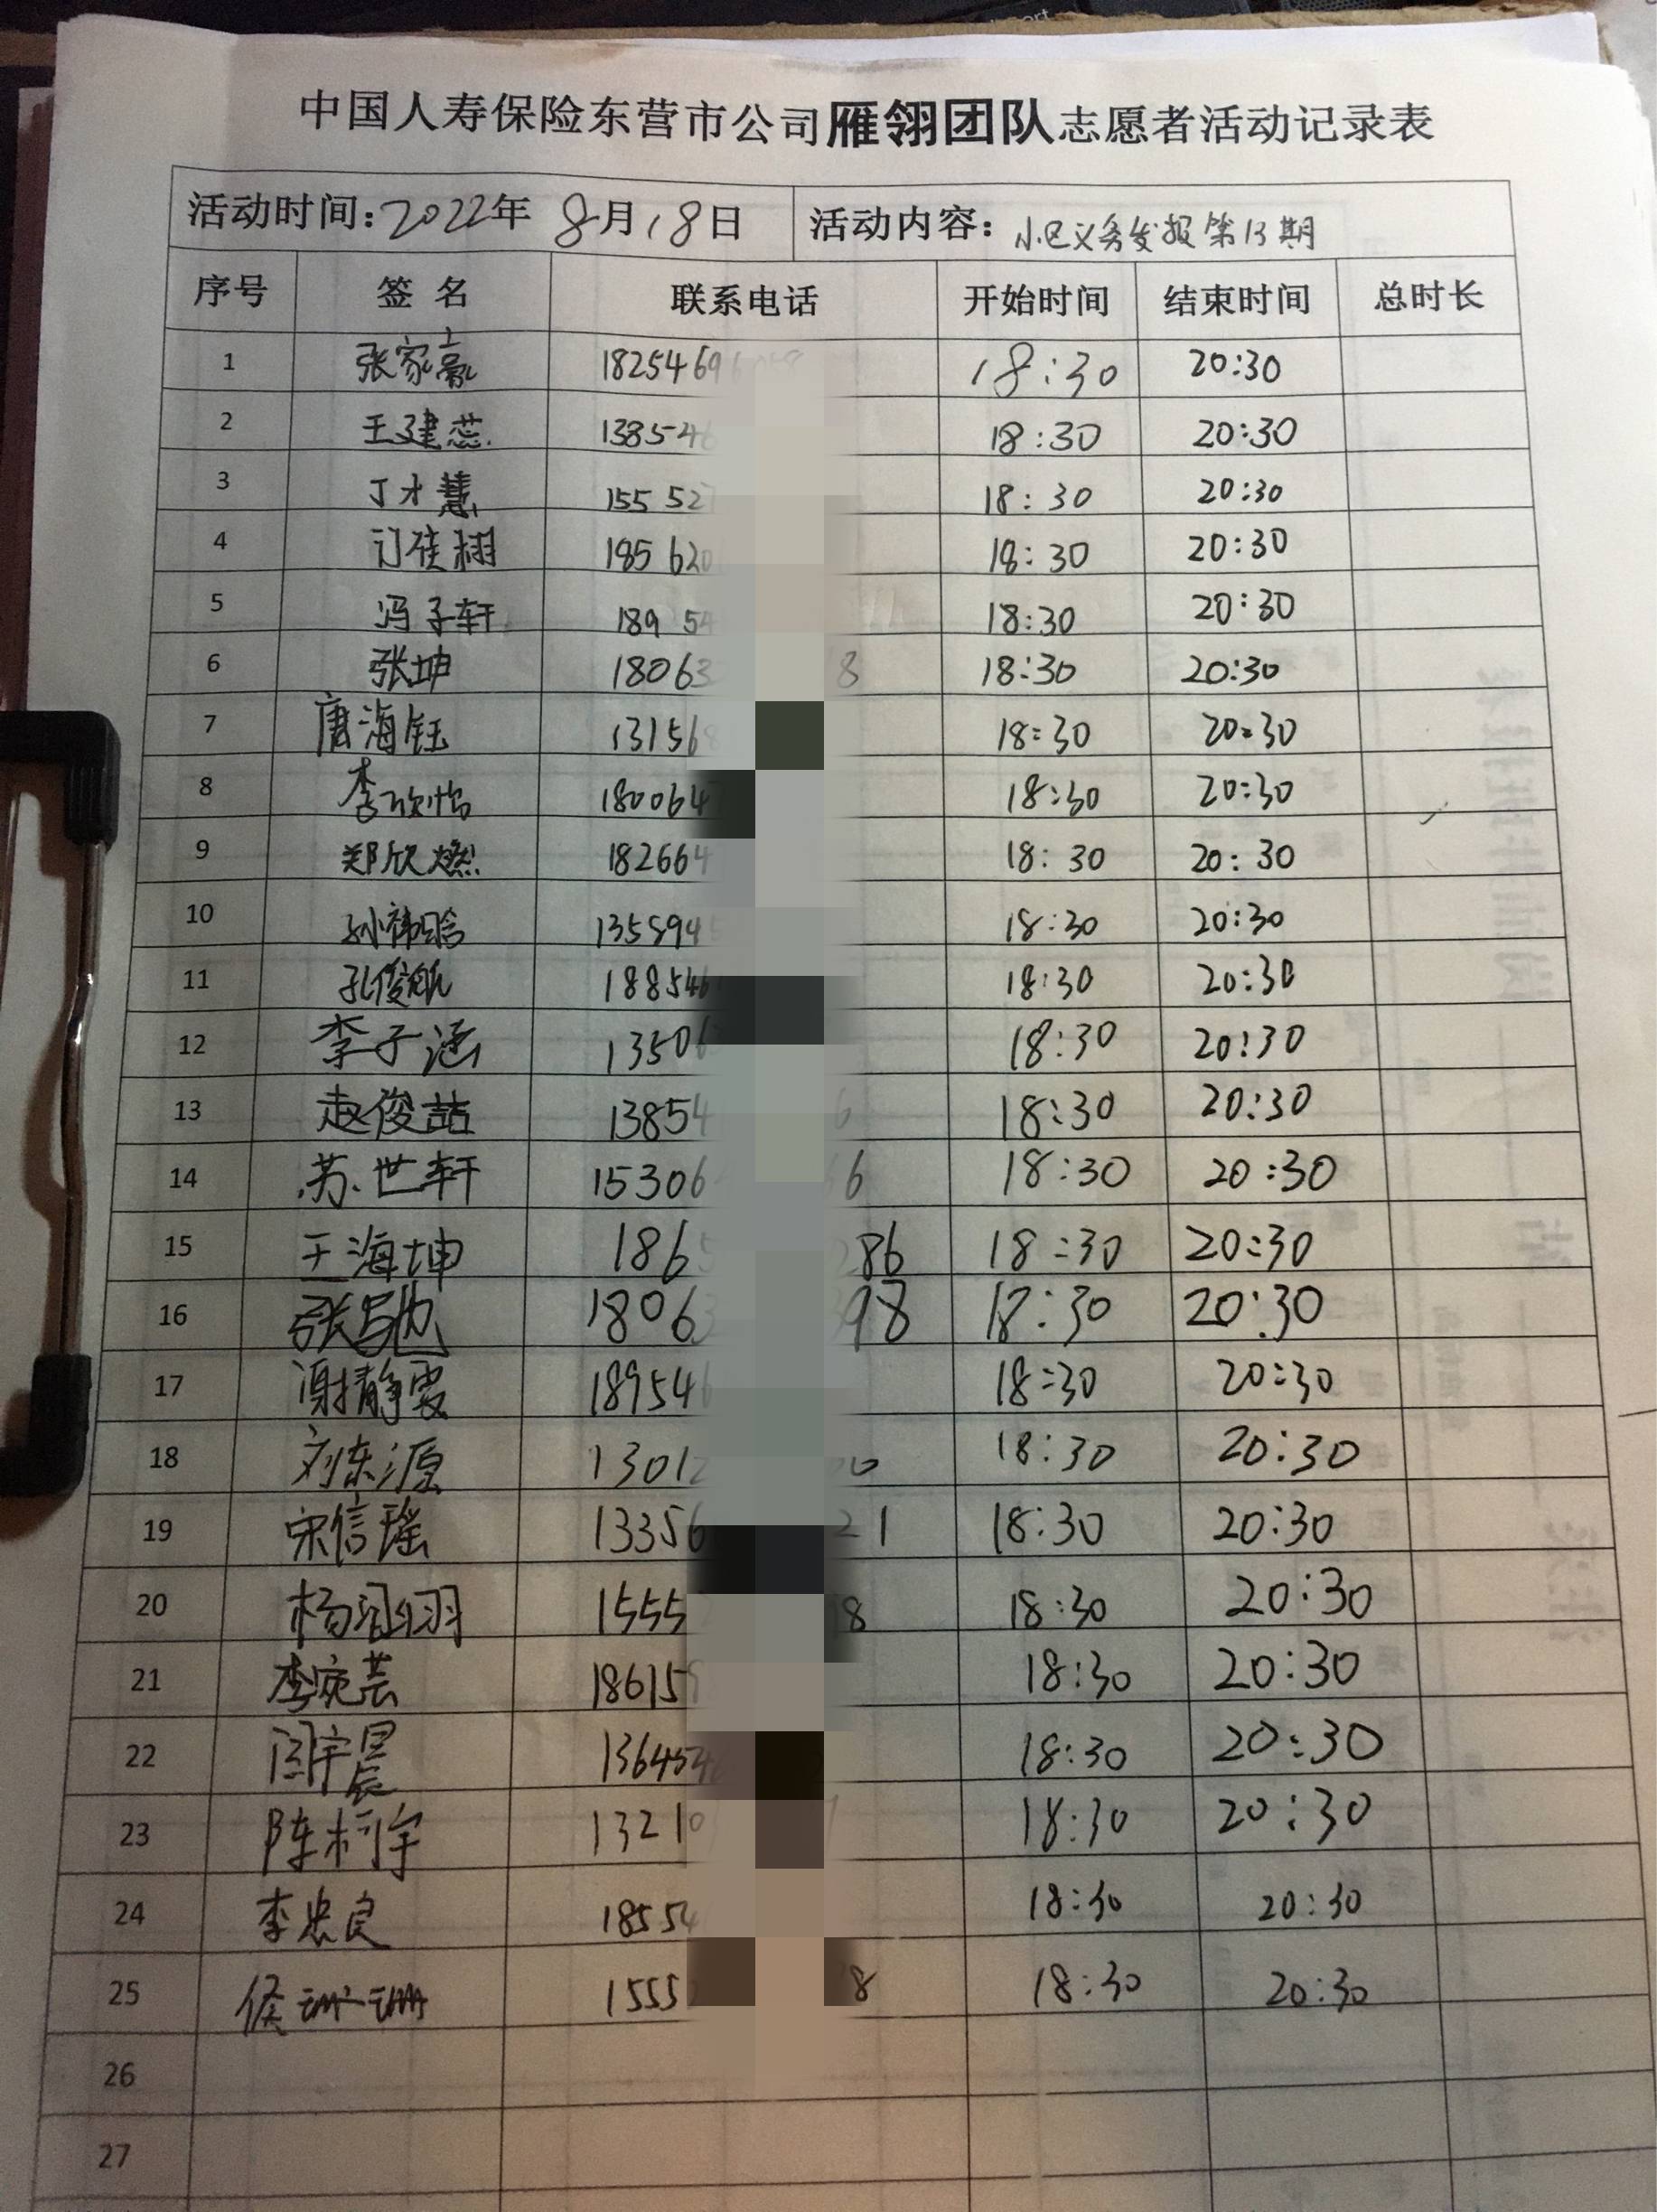 中国人寿保险东营市公司雁翎团队志愿者活动记录表
活动时间:2022年 8月18日 活动内容: 小区义务发报第13期
序号 签 名 联系电话 开始时间 结束时间 总时长
1 张家赢 18254696 18:30 20:30
2 王建蕊 13854 18:30 20:30
3 丁才慧 155 52 18:30 20:30
4 185 620 18:30 20:30
5 冯子轩 189 54 18:30 20:30
6 张坤 18063 8 18:30 20:30
7 唐海钰 13156 18:30 20:30
8 李欣怡 180064 18:30 20:30
9 郑欣燃 182664 18:30 20:30
10 孙祎晗 135894 18:30 20:30
11 孔俊航 188546 18:30 20:30
12 李子涵 1350 18:30 20:30
13 赵俊喆 13854 6 18:30 20:30
14 苏世轩 15306 6 18:30 20:30
15 王海坤 186 286 18:30 20:30
16 张驰 1806 98 18:30 20:30
17 谢静雯 18954 18:30 20:30
18 刘东源 1301 18:30 20:30
19 宋信瑶 13356 21 18:30 20:30
20 1555 18 18:30 20:30
21 李宛芸 18615 18:30 20:30
22 闫宇晨 136454 18:30 20:30
23 陈柯宇 13210 18:30 20:30
24 李忠良 1855 18:30 20:30
25 侯 1555 8 18:30 20:30
26
27